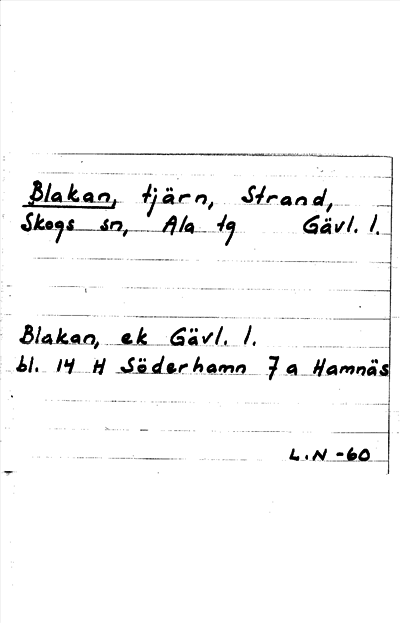 Blakan, tjärn, Strand,
Skogs sn, Ala tg Gävl. l.
Blakan, ek Gävl. l.
bl. 14 H Söderhamn 7 a Hamnäs
L.N -60